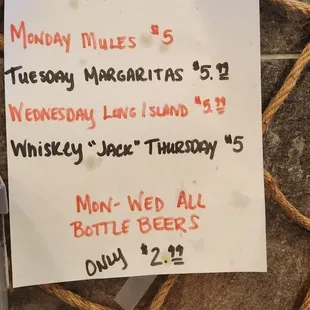 Monday Mules $5
Tuesday Margaritas $5.99
Wednesday Long Island $5.99
Whiskey "Jack" Thursday $5
Mon-Wed All
Bottle Beers
Only $2.99